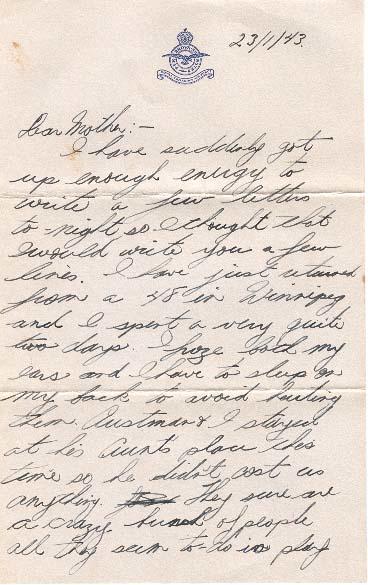 23/1/43.
Dear Mother:-
I have suddenly got
up enough energy to
write a few letters
to-night so I thought that
I would write you a few
lines. I have just returned
from a 48 in Winnipeg
and I spent a very quite
two days. I froze both my
ears and I have to sleep on
my back to avoid hurting
them. Austman & I stayed
at his Aunt's place this
time so he didn't cost us
anything. They sure are
a crazy bunch of people
all they seem to do is play